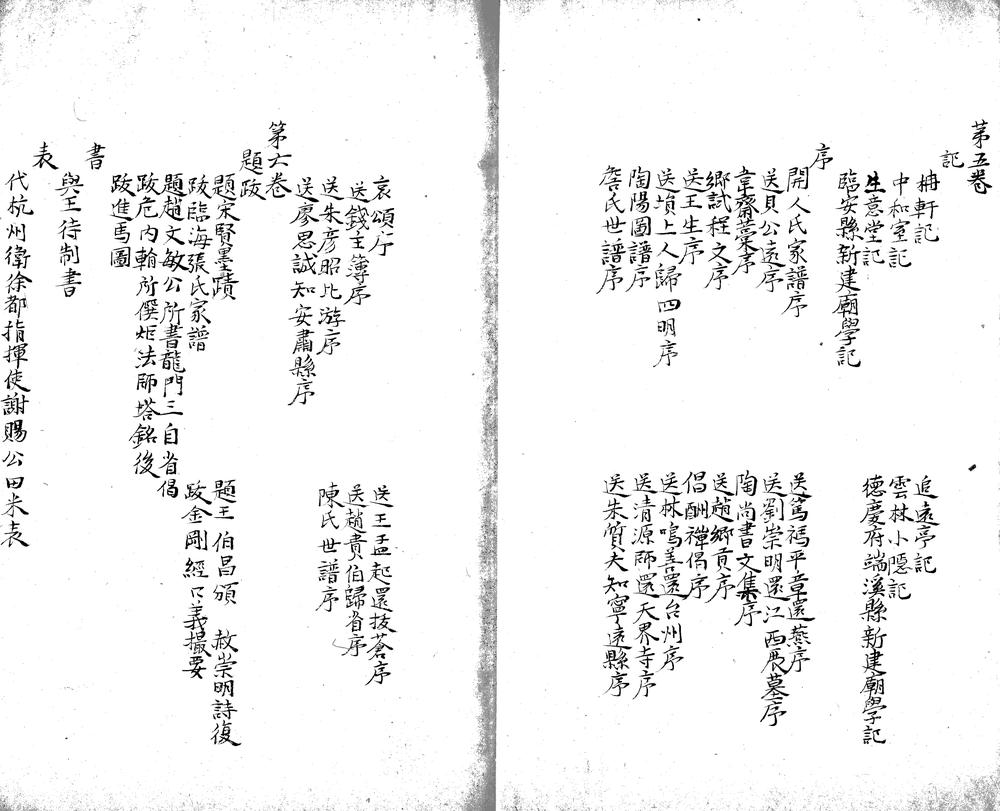 第五卷
記
柟軒記
追遠亭記
中和室記
雲林小隱記
生意堂記
德慶府端溪縣新建廟學記
臨安縣新建廟學記
序
開人氏家譜序
送篤禡平章還燕序
送貝公遠序
送劉崇明還江西展墓序
韋齋藁序
陶尚書文集序
鄉試程文序
送趙鄉貢序
送王生序
倡酬禪偈序
送塤上人歸四明序
送林鳴善還台州序
陶陽圖譜序
送清源師還天界寺序
詹氏世譜序
送朱質夫知寧遠縣序
哀頌序
送王孟起還技蒼序
送錢主簿序
送趙貴伯歸省序
送朱彥昭北游序
陳氏世譜序
送廖思誠知安肅縣序
第六卷
題跋
題宋賢墨蹟
題王伯昌頒 赦崇明詩復
跋臨海張氏家譜
跋金剛經口義撮要
題趙文敏公所書龍門三自省偈
跋危內翰所僎炬法師塔銘後
跋進馬圖
書
與王待制書
表
代杭州衛徐都指揮使謝賜公田米表